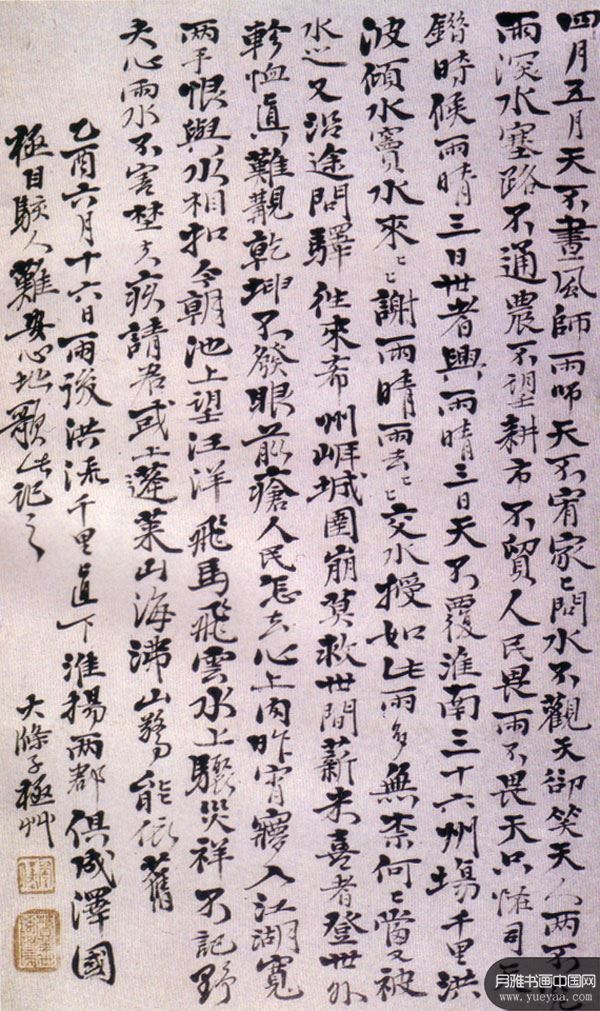 四月五月天不晝風師雨師天不宥家〻問水不觀天卻笑天人兩不
雨深水塞路不通農不望耕市不貿人民畏雨不畏天只恠司
鐕時候雨晴三日世者興雨晴三日天不覆淮南三十六州塲千里洪
波傾水竇水來〻謝雨晴雨去〻交水授如此雨多無柰何〻當又被
水之又沿途問驛往來希州崕城圍崩莫救世間薪未喜者登世外
軫恤真難覯乾坤不發眼前瘡人民怎去心上肉昨宵寢入江湖寬
兩手恨與水相扣今朝池上望汪洋飛馬飛雲水上驟災祥不記野
夫心雨水不害埜夫疾請君或上蓬萊山海沸山勢能依舊
乙酉六月十六日雨後洪流千里直下淮揚兩郡俱成澤國
極目駭人難安心地歌此記之
大滌子極艸
月雅书画中国网
www.yueyaa.com